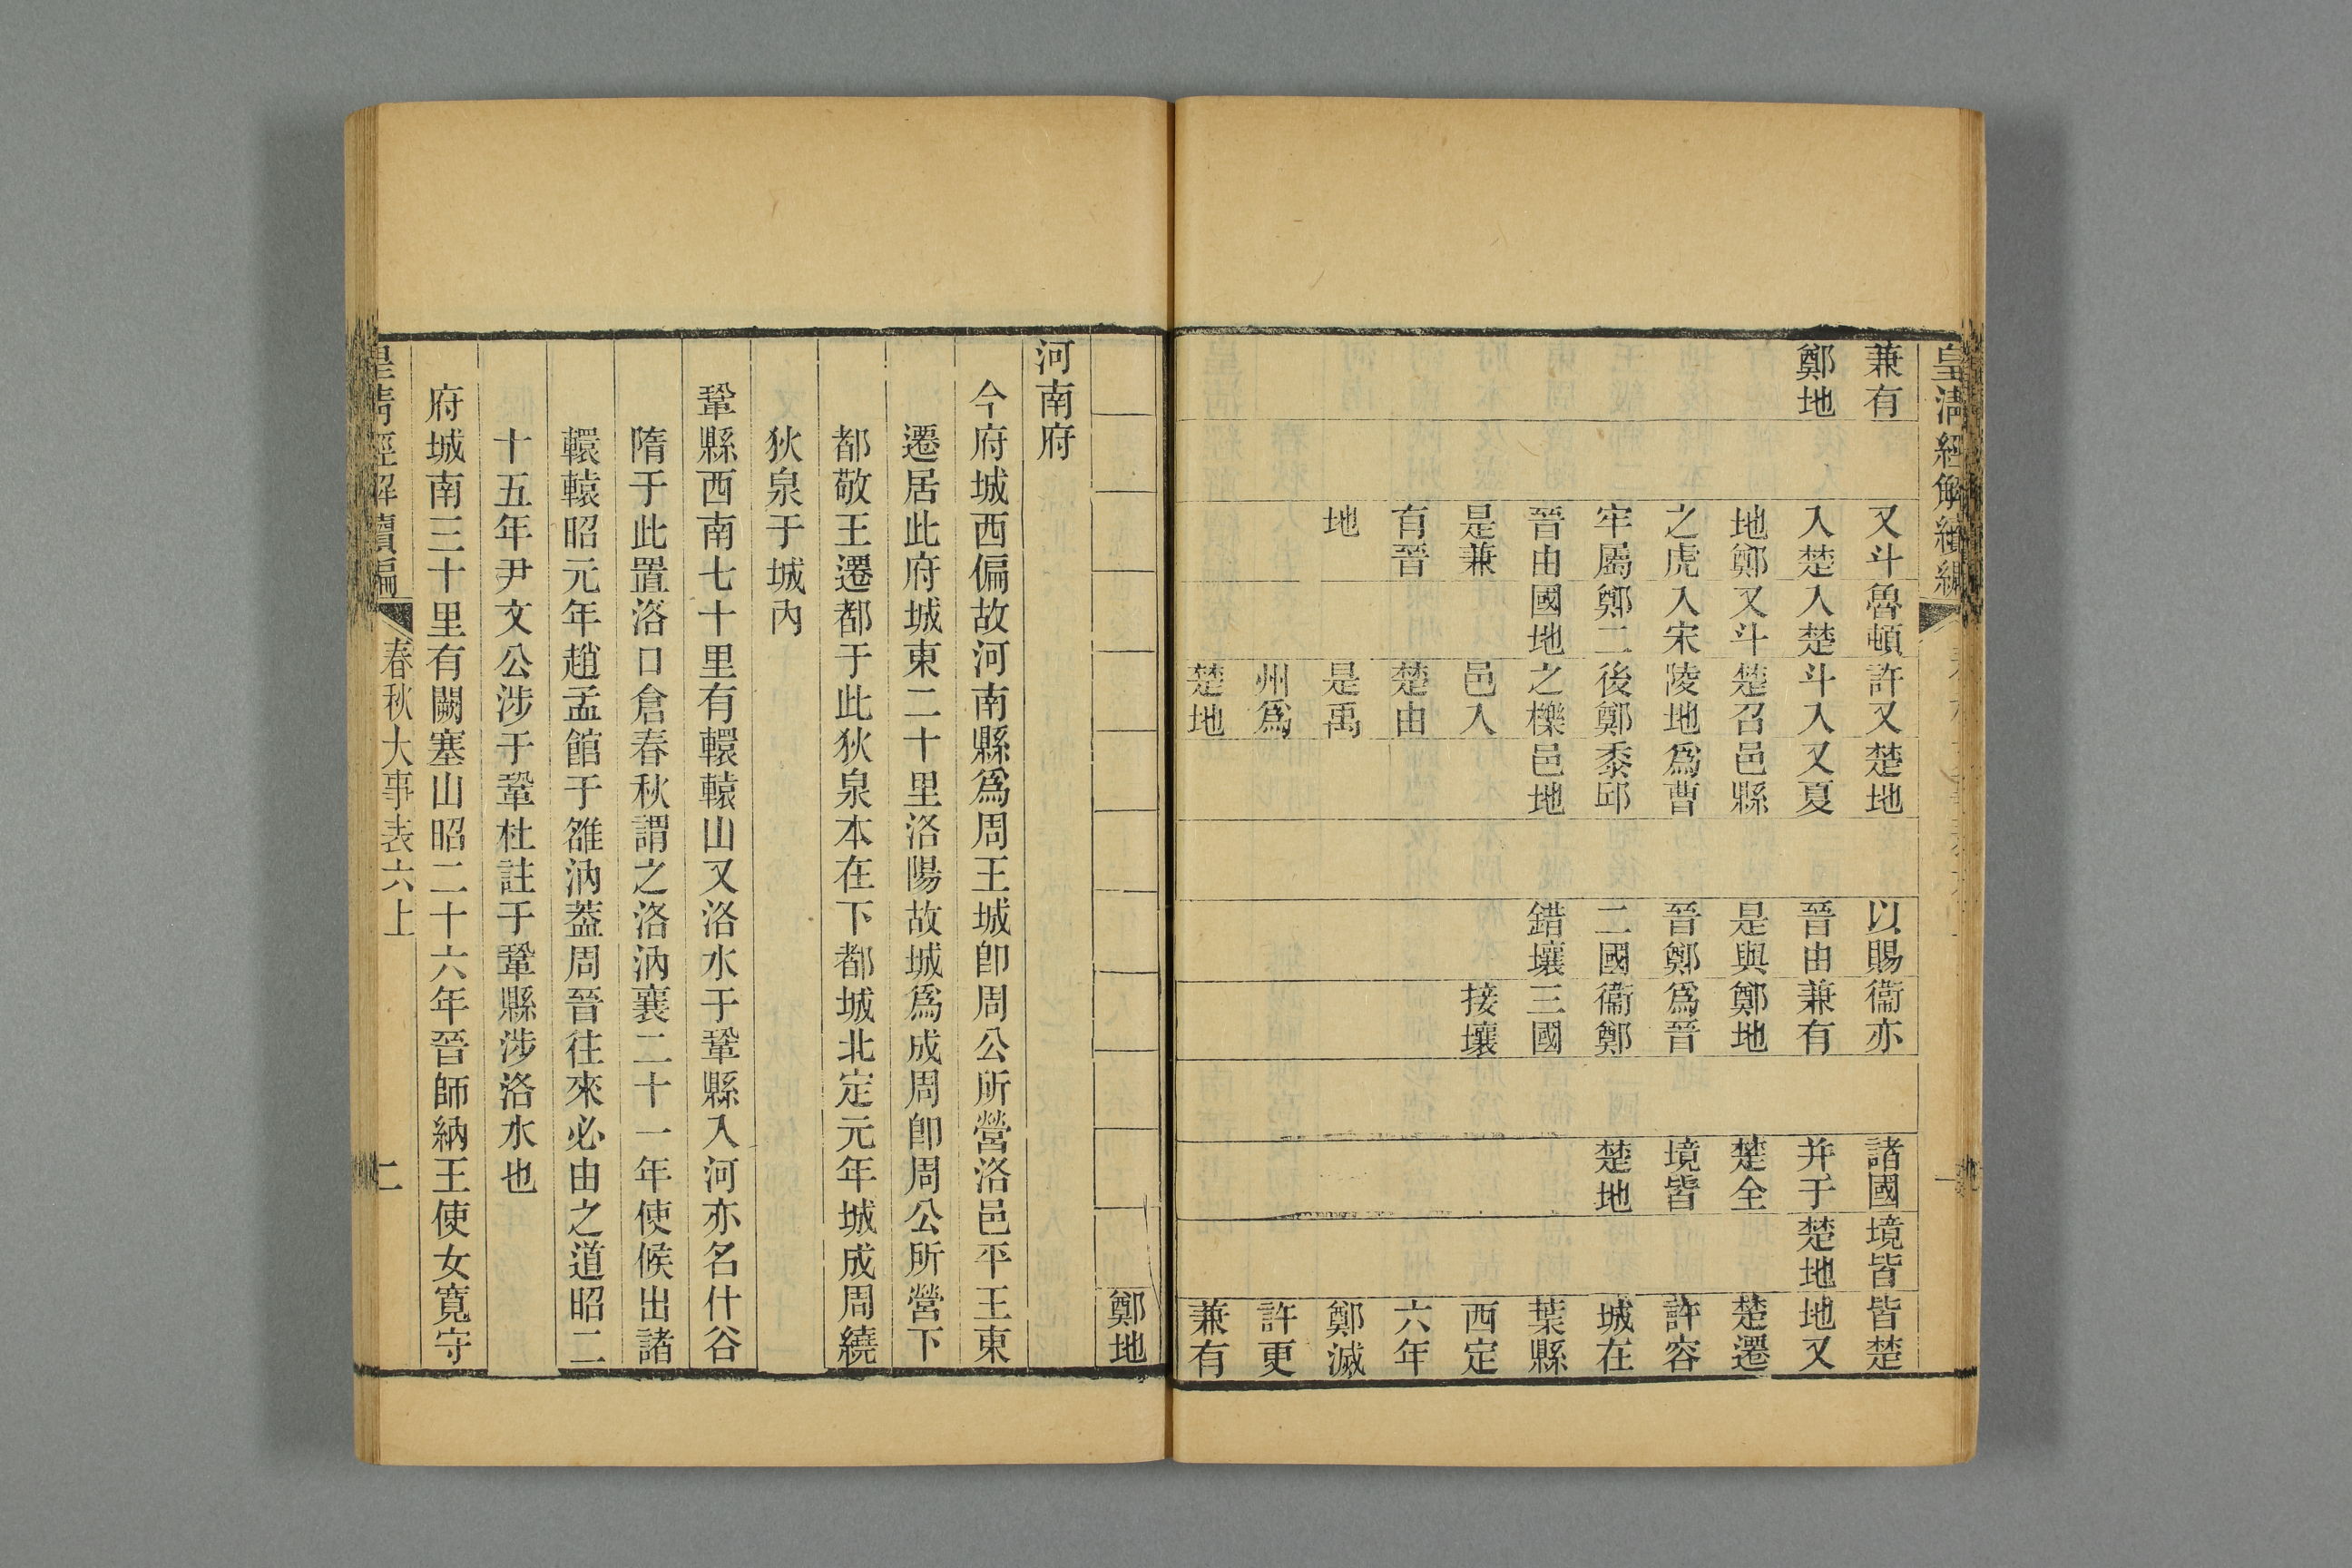 皇清經解續編
兼有
鄭地
又斗
入楚
地鄭
之虎
牢屬
晉由
是兼
有晉
地
魯頓
入楚
又斗
入宋
鄭二
國地
許又
斗入
楚召
陵地
後鄭
之櫟
邑入
楚由
是禹
州爲
楚地
楚地
又夏
邑縣
爲曹
黍邱
邑地
以賜
晉由
是與
晉鄭
二國
錯壤
衞亦
兼有
鄭地
爲晉
衞鄭
三國
接壤
諸國
并于
楚全
境皆
楚地
境皆
楚地
皆楚
地又
楚遷
許容
城在
葉縣
西定
六年
鄭滅
許更
兼有
鄭地
河南府
今府城西偏故河南縣爲周王城卽周公所營洛邑平王東
遷居此府城東二十里洛陽故城爲成周卽周公所營下
都敬王遷都于此狄泉本在下都城北定元年城成周繞
狄泉于城內
鞏縣西南七十里有轘轅山又洛水于鞏縣入河亦名什谷
隋于此置洛口倉春秋謂之洛汭襄二十一年使候出諸
轘轅昭元年趙孟館于雒汭葢周晉往來必由之道昭二
十五年尹文公涉于鞏杜註于鞏縣涉洛水也
府城南三十里有闕塞山昭二十六年晉師納王使女寬守
皇清經解續編
春秋大事表六上
二